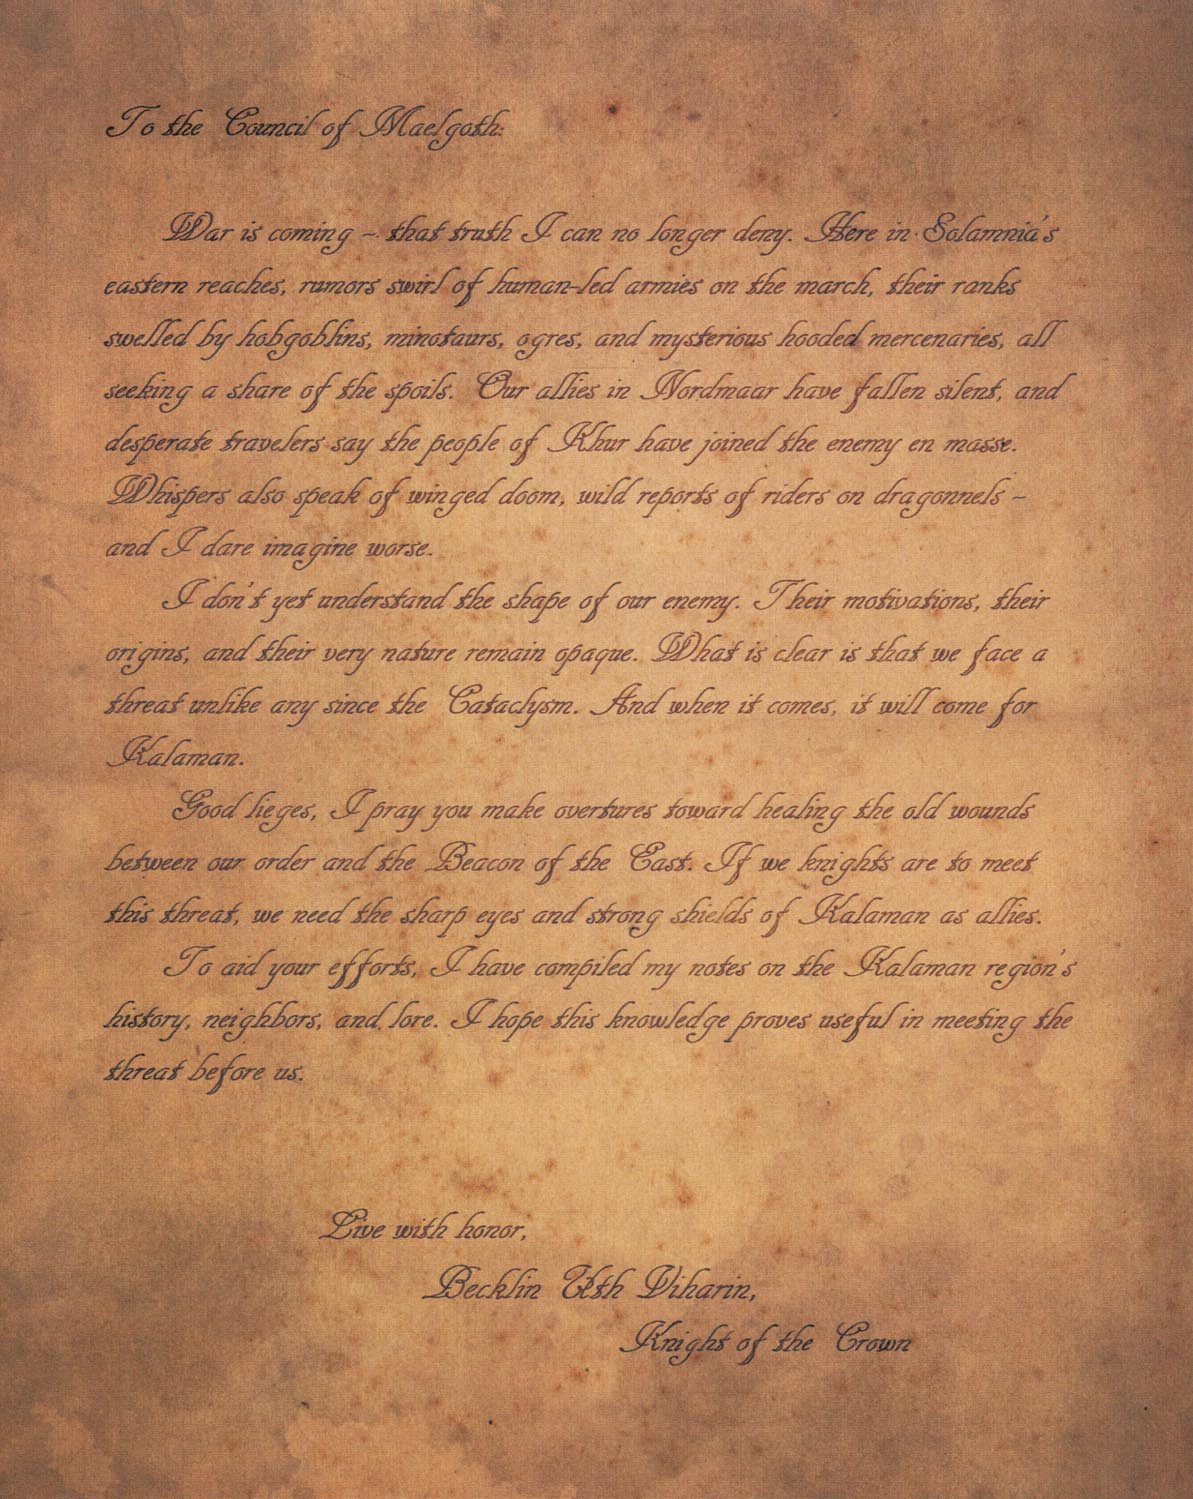 To the Council of Maelgoth:
War is coming – that truth I can no longer deny. Here in Solamnia's
eastern reaches, rumors swirl of human-led armies on the march, their ranks
swelled by hobgoblins, minotaurs, ogres, and mysterious hooded mercenaries, all
seeking a share of the spoils. Our allies in Nordmaar have fallen silent, and
desperate travelers say the people of Khur have joined the enemy en masse.
Whispers also speak of winged doom, wild reports of riders on dragonnels –
and I dare imagine worse.
I don't yet understand the shape of our enemy. Their motivations, their
origins, and their very nature remain opaque. What is clear is that we face a
threat unlike any since the Cataclysm. And when it comes, it will come for
Kalaman.
Good lieges, I pray you make overtures toward healing the old wounds
between our order and the Beacon of the East. If we knights are to meet
this threat, we need the sharp eyes and strong shields of Kalaman as allies.
To aid your efforts, I have compiled my notes on the Kalaman region's
history, neighbors, and lore. I hope this knowledge proves useful in meeting the
threat before us.
Live with honor,
Becklin Uth Viharin,
Knight of the Crown